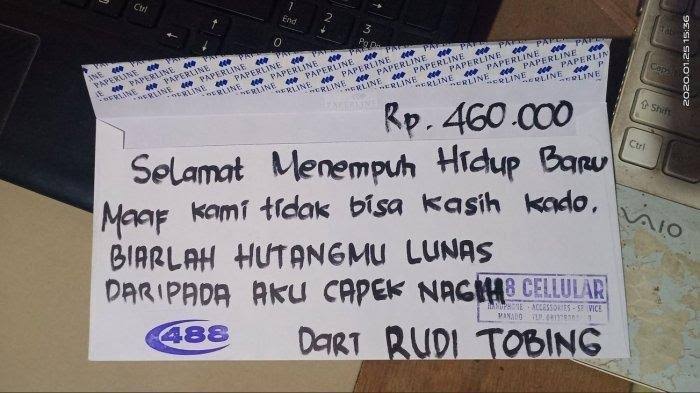 PAPERLINE PAPERLINE PAPERLINE PAPERLINE PAPERLINE
Rp. 460.000
Selamat Menempuh Hidup Baru
Maaf kami tidak bisa kasih kado.
BIARLAH HUTANGMU LUNAS
DARIPADA AKU CAPEK NAGIH
488 CELLULAR
HANDPHONE - ACCESSORIES - SERVICE
MANADO TLP.
488
Dari RUDI TOBING
Ctrl
End
Shift
Ctrl
VAIO
2020.01.25 15:36